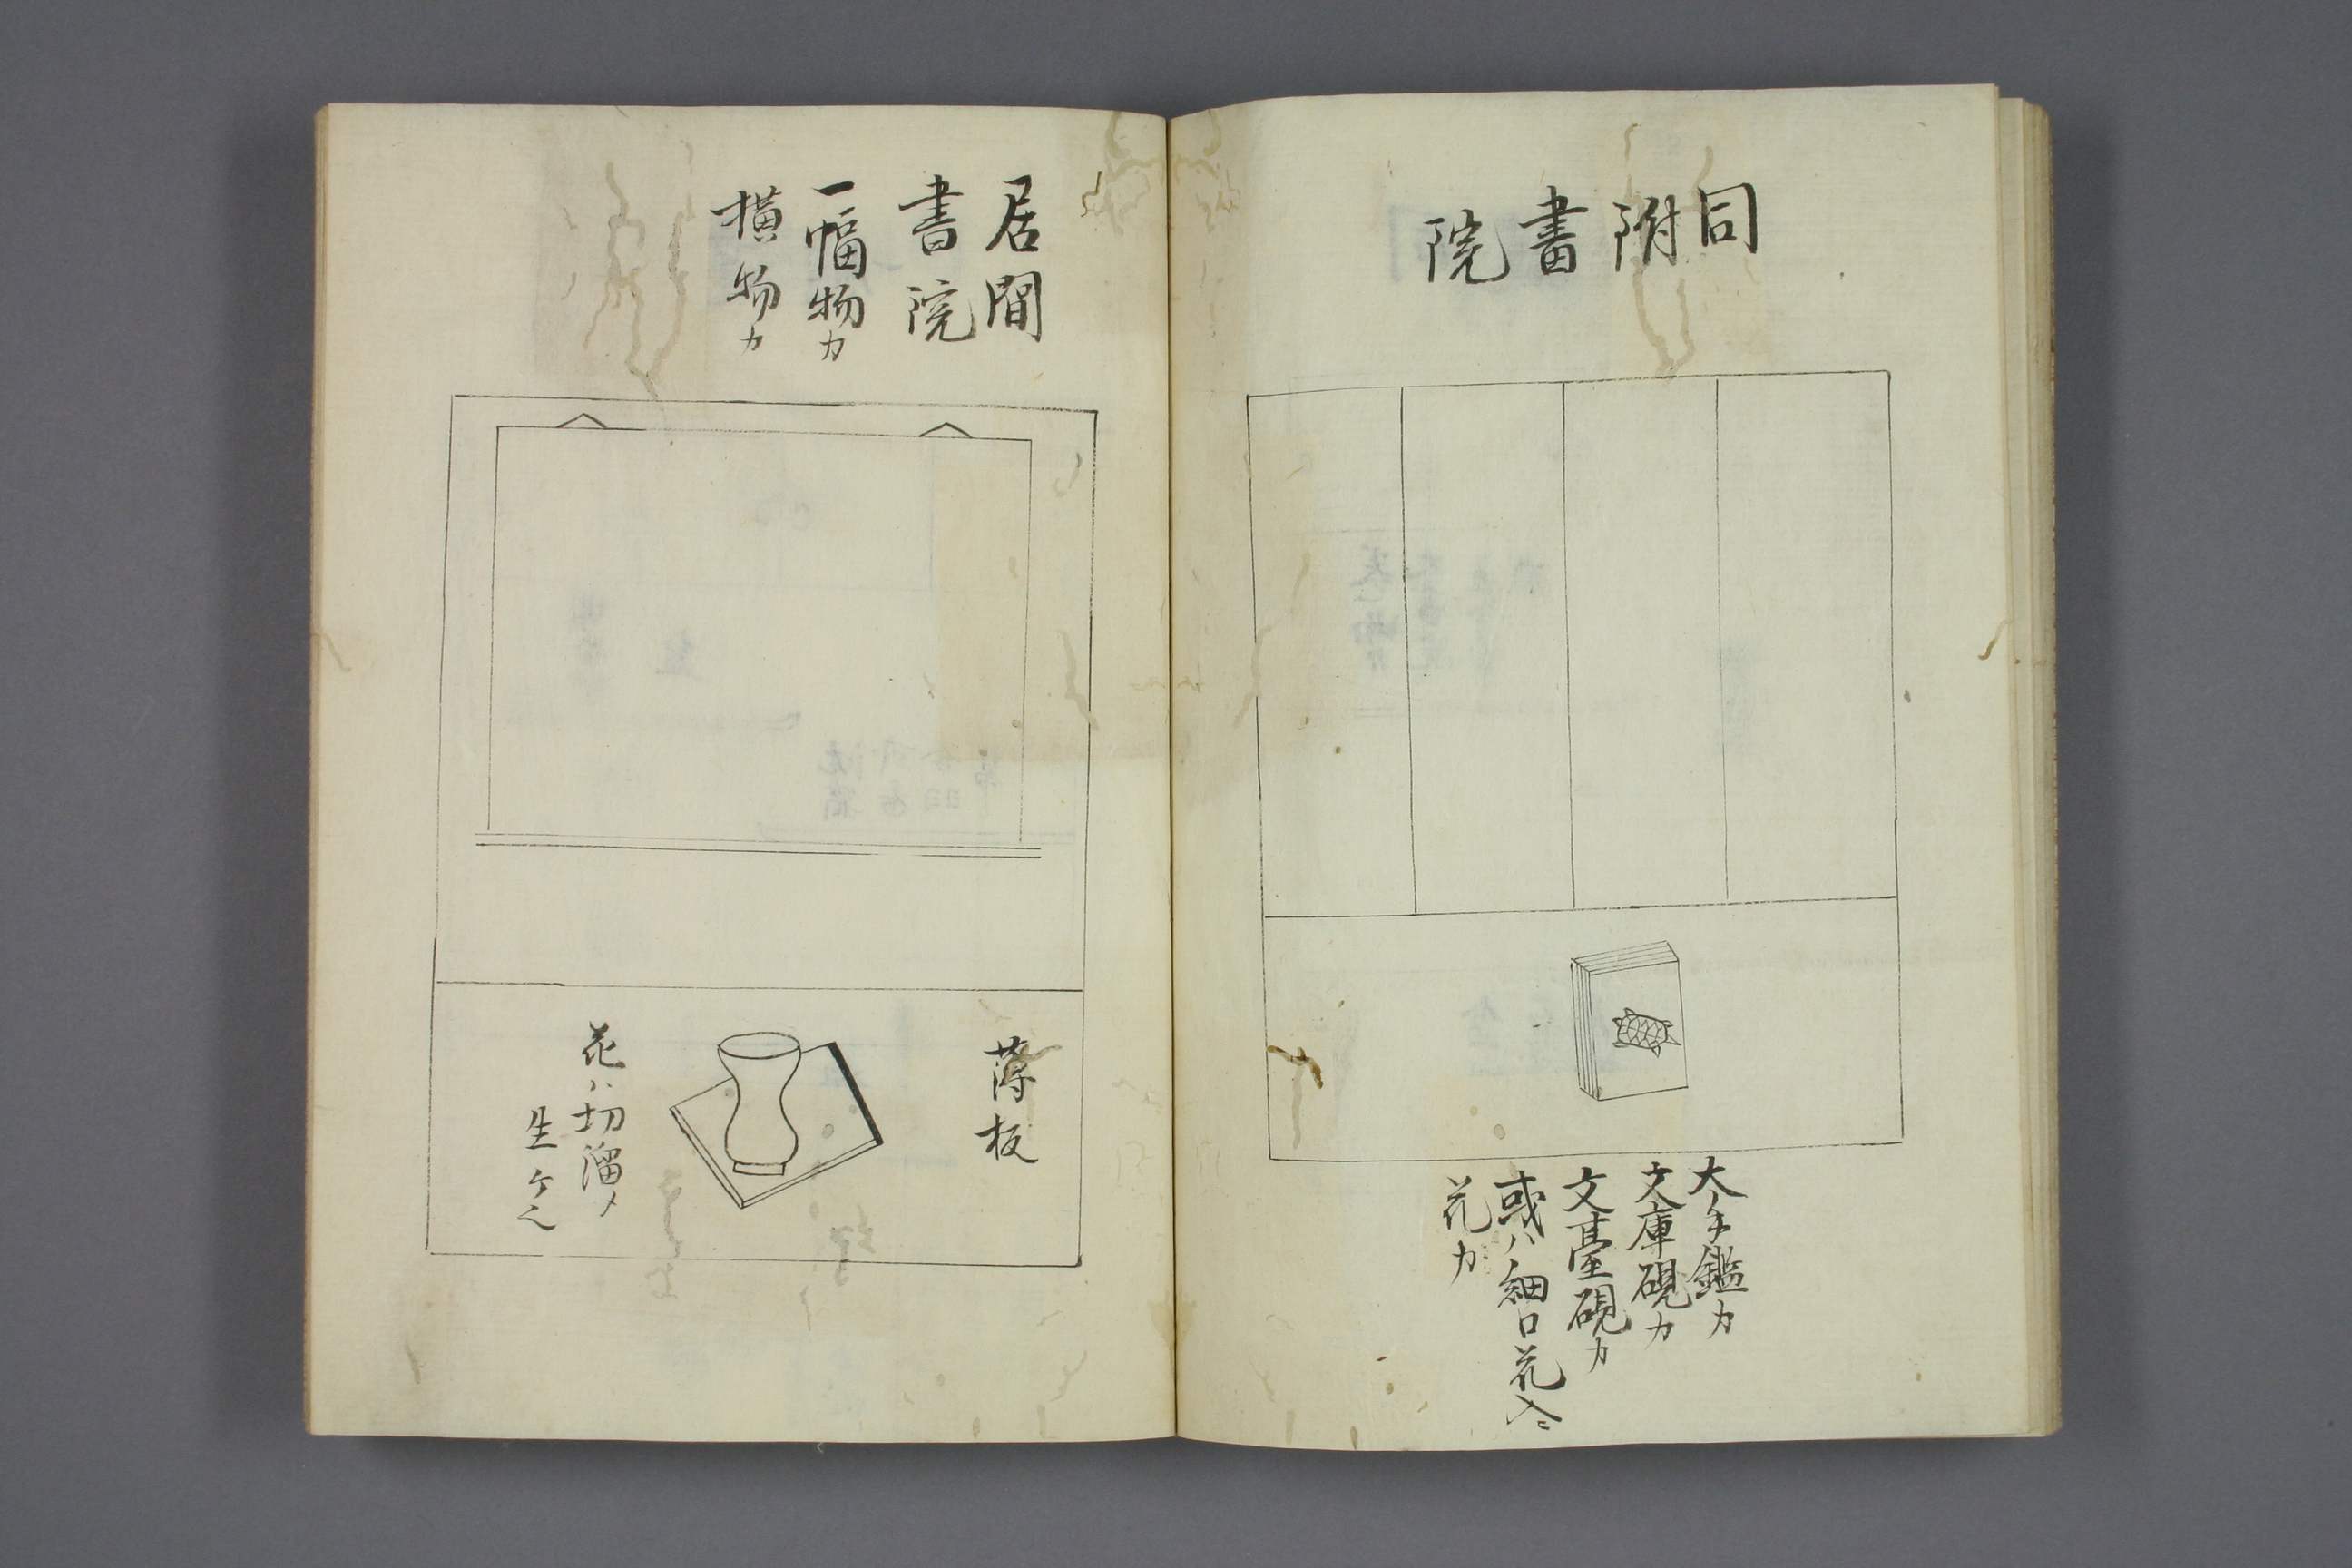 同
附
書
院
大手鑑カ
文庫硯カ
文臺硯カ
或ハ細口花入ニ
花カ
居間
書院
一幅物カ
横物カ
薄板
花ハ切溜メ
生ケル